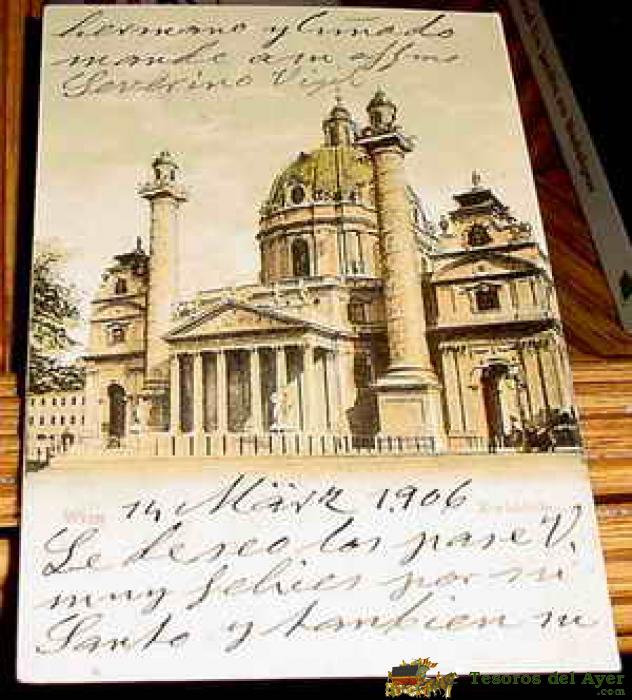 hermano y Cuñado
mande a su affmo
Severino Vigil
Wien
14 März 1906
Le deseo los pase V.
muy felices por su
Santo y tanbien su
Tesoros del Ayer
.com